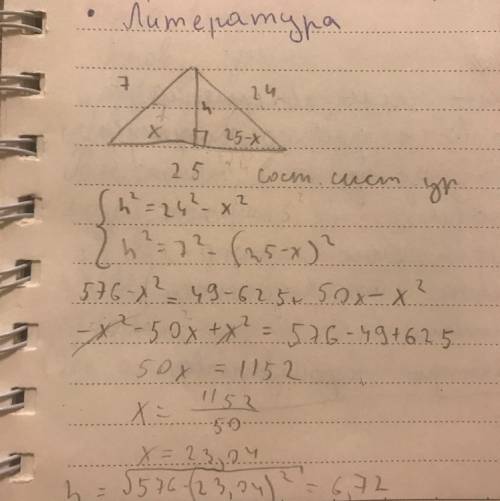 • Литература
7
h
24
x
25-x
25
сост. сист ур
{ h² = 24² - x²
h² = 7² - (25-x)²
576-x² = 49-625+ 50x - x²
-x² - 50x + x² = 576 - 49 + 625
50x = 1152
x = 1152/50
x = 23,04
h = √576-(23,04)² = 6,72